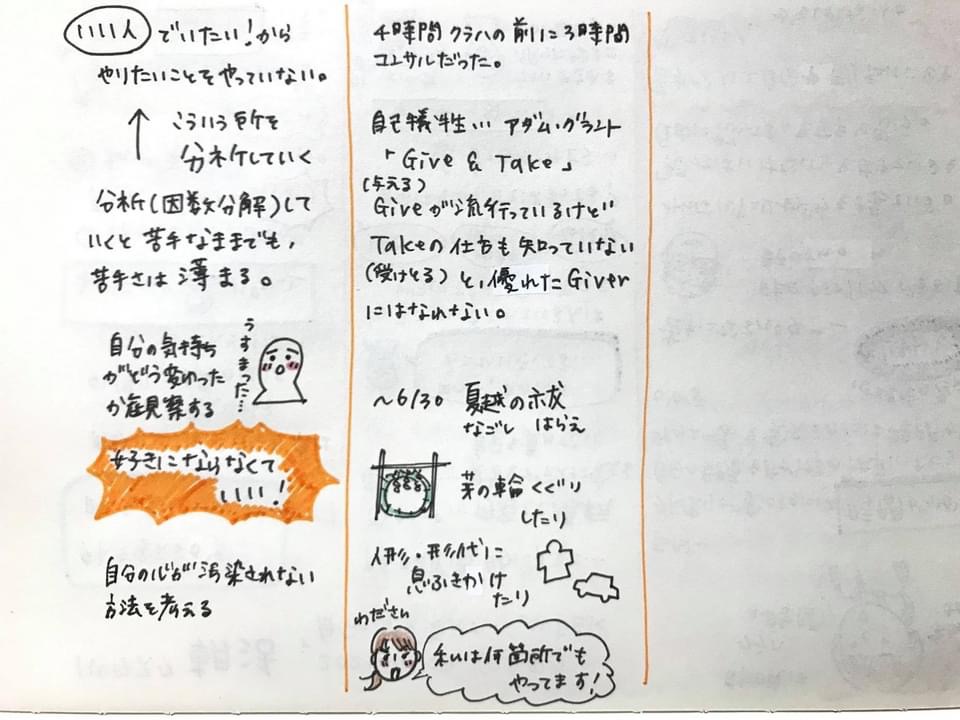 いい人 でいたい！から
やりたいことをやっていない。
こういう所を
分析していく
分析(因数分解)して
いくと苦手なままでも、
苦手さは薄まる。
うすまった…
自分の気持ち
がどう変わった
か観察する
好きにならなくて
いい！
自分の心が汚染されない
方法を考える
4時間クラハの前に3時間
コンサルだった。
自己犠牲… アダム・グラント
「Give & Take」
(与える)
Giveが流行っているけど
Takeの仕方も知っていない
(受けとる) と、優れたGiver
にはなれない。
〜6/30 夏越の祓
なごし はらえ
茅の輪くぐり
したり
人形・形代に
息ふきかけ
たり
わださん
私は何箇所でも
やってます！